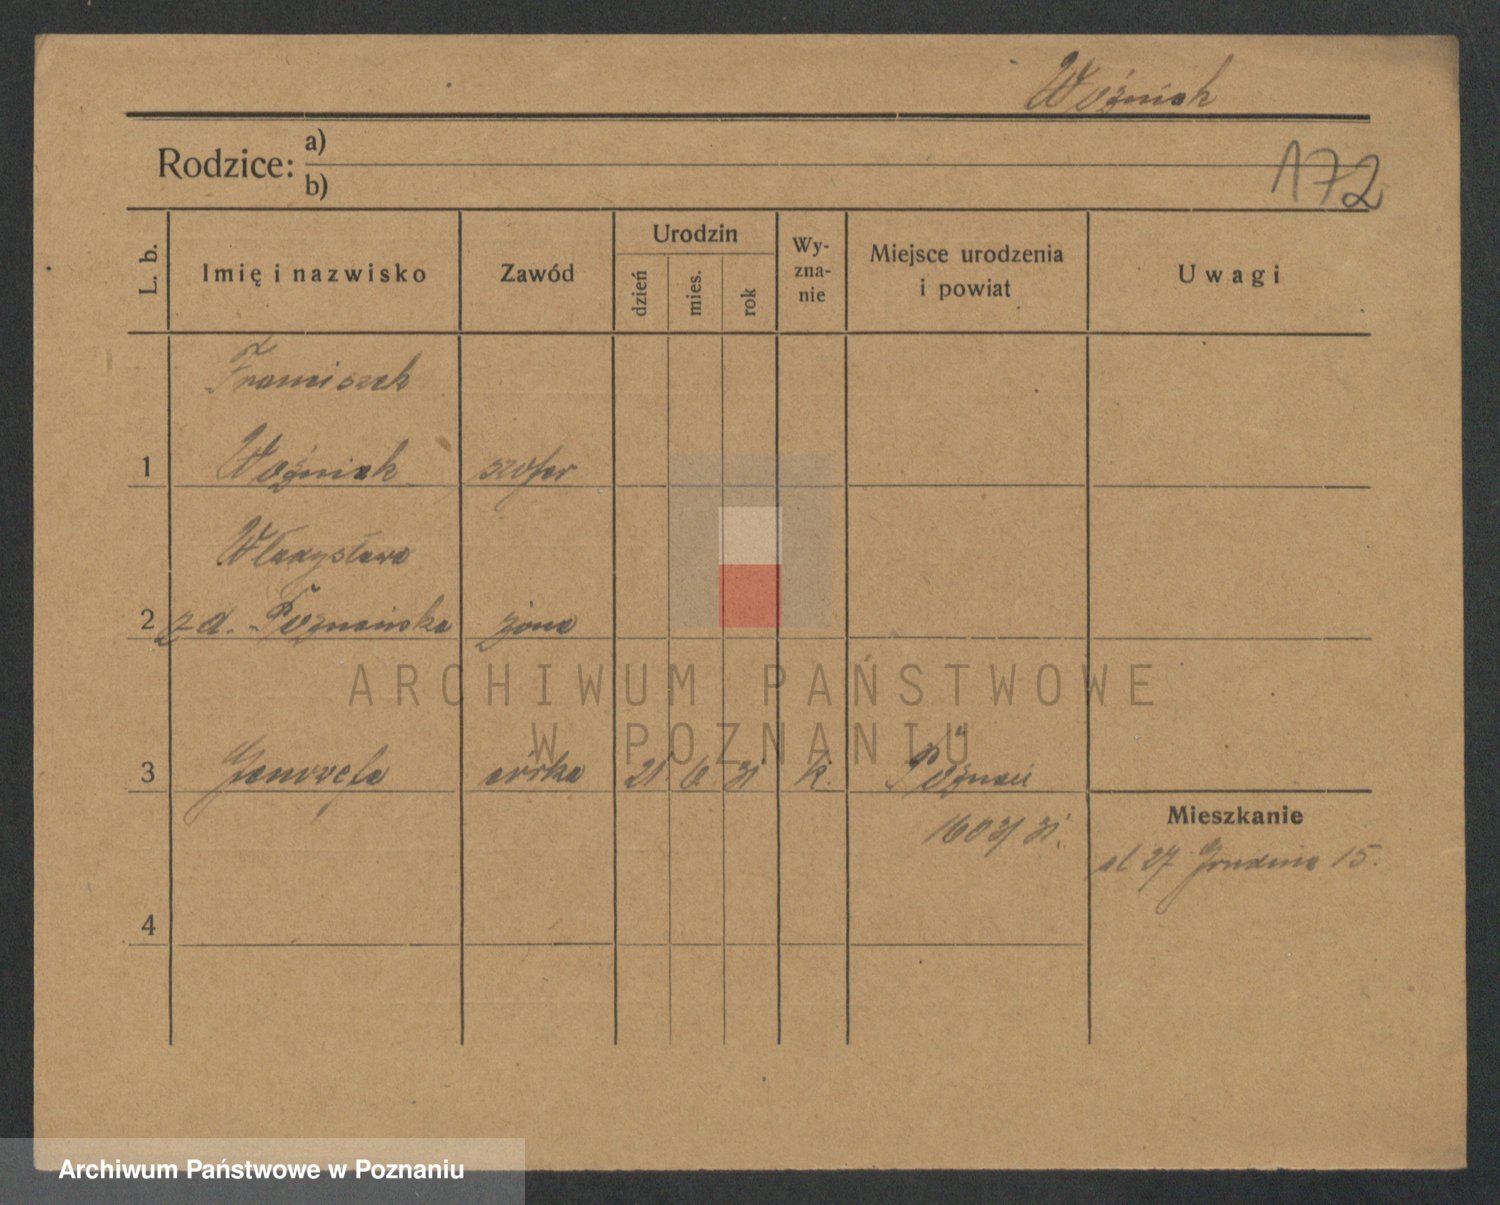 Woźniak
Rodzice: a)
b)
172
L. b.
Imię i nazwisko
Zawód
Urodzin
dzień
mies.
rok
Wy-
zna-
nie
Miejsce urodzenia
i powiat
Uwagi
Franciszek
1 Woźniak szofer
Władysława
2 z d. Poznańska żona
ARCHIWUM PAŃSTWOWE
W POZNANIU
3 córka 21 6 31 k. Poznań
1603/31.
Mieszkanie
ul 27 Grudnia 15.
4
Archiwum Państwowe w Poznaniu